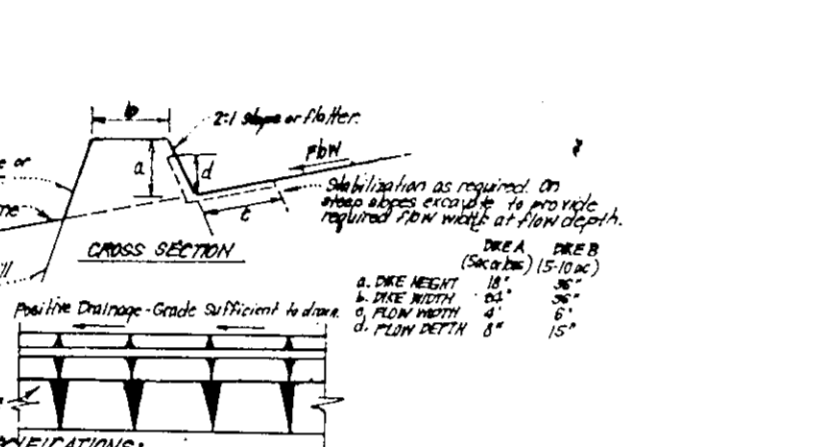 b
2:1 slope or flatter.
Flow
e or
a
d
Stabilization as required. On
steep slopes excavate to provide
required flow width at flow depth.
c
CROSS SECTION
DIKE A DIKE B
(5ac or less) (5-10 ac)
a. DIKE HEIGHT 18" 36"
b. DIKE WIDTH 36"
c. FLOW WIDTH 4' 6'
d. FLOW DEPTH 8" 15"
Positive Drainage - Grade Sufficient to drain.